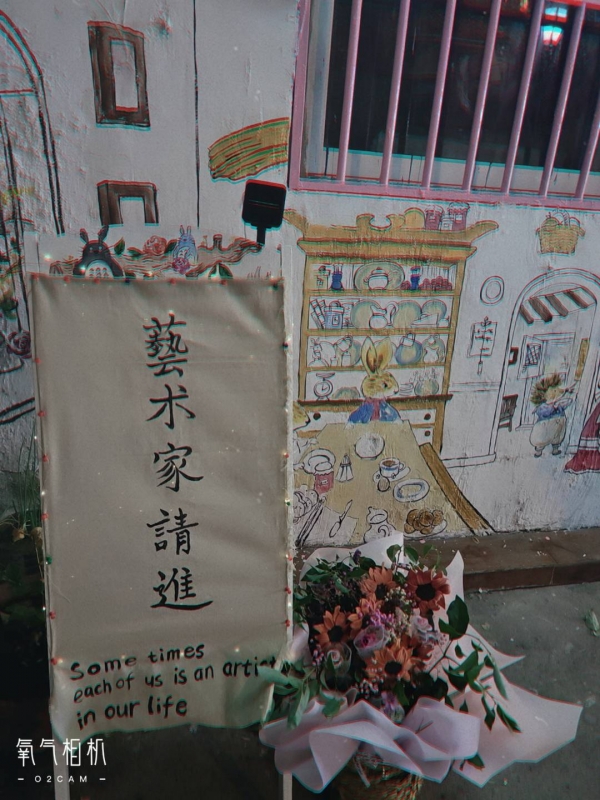 藝术家請進
Some times
each of us is an artist
in our life
氧气相机
- O2CAM -